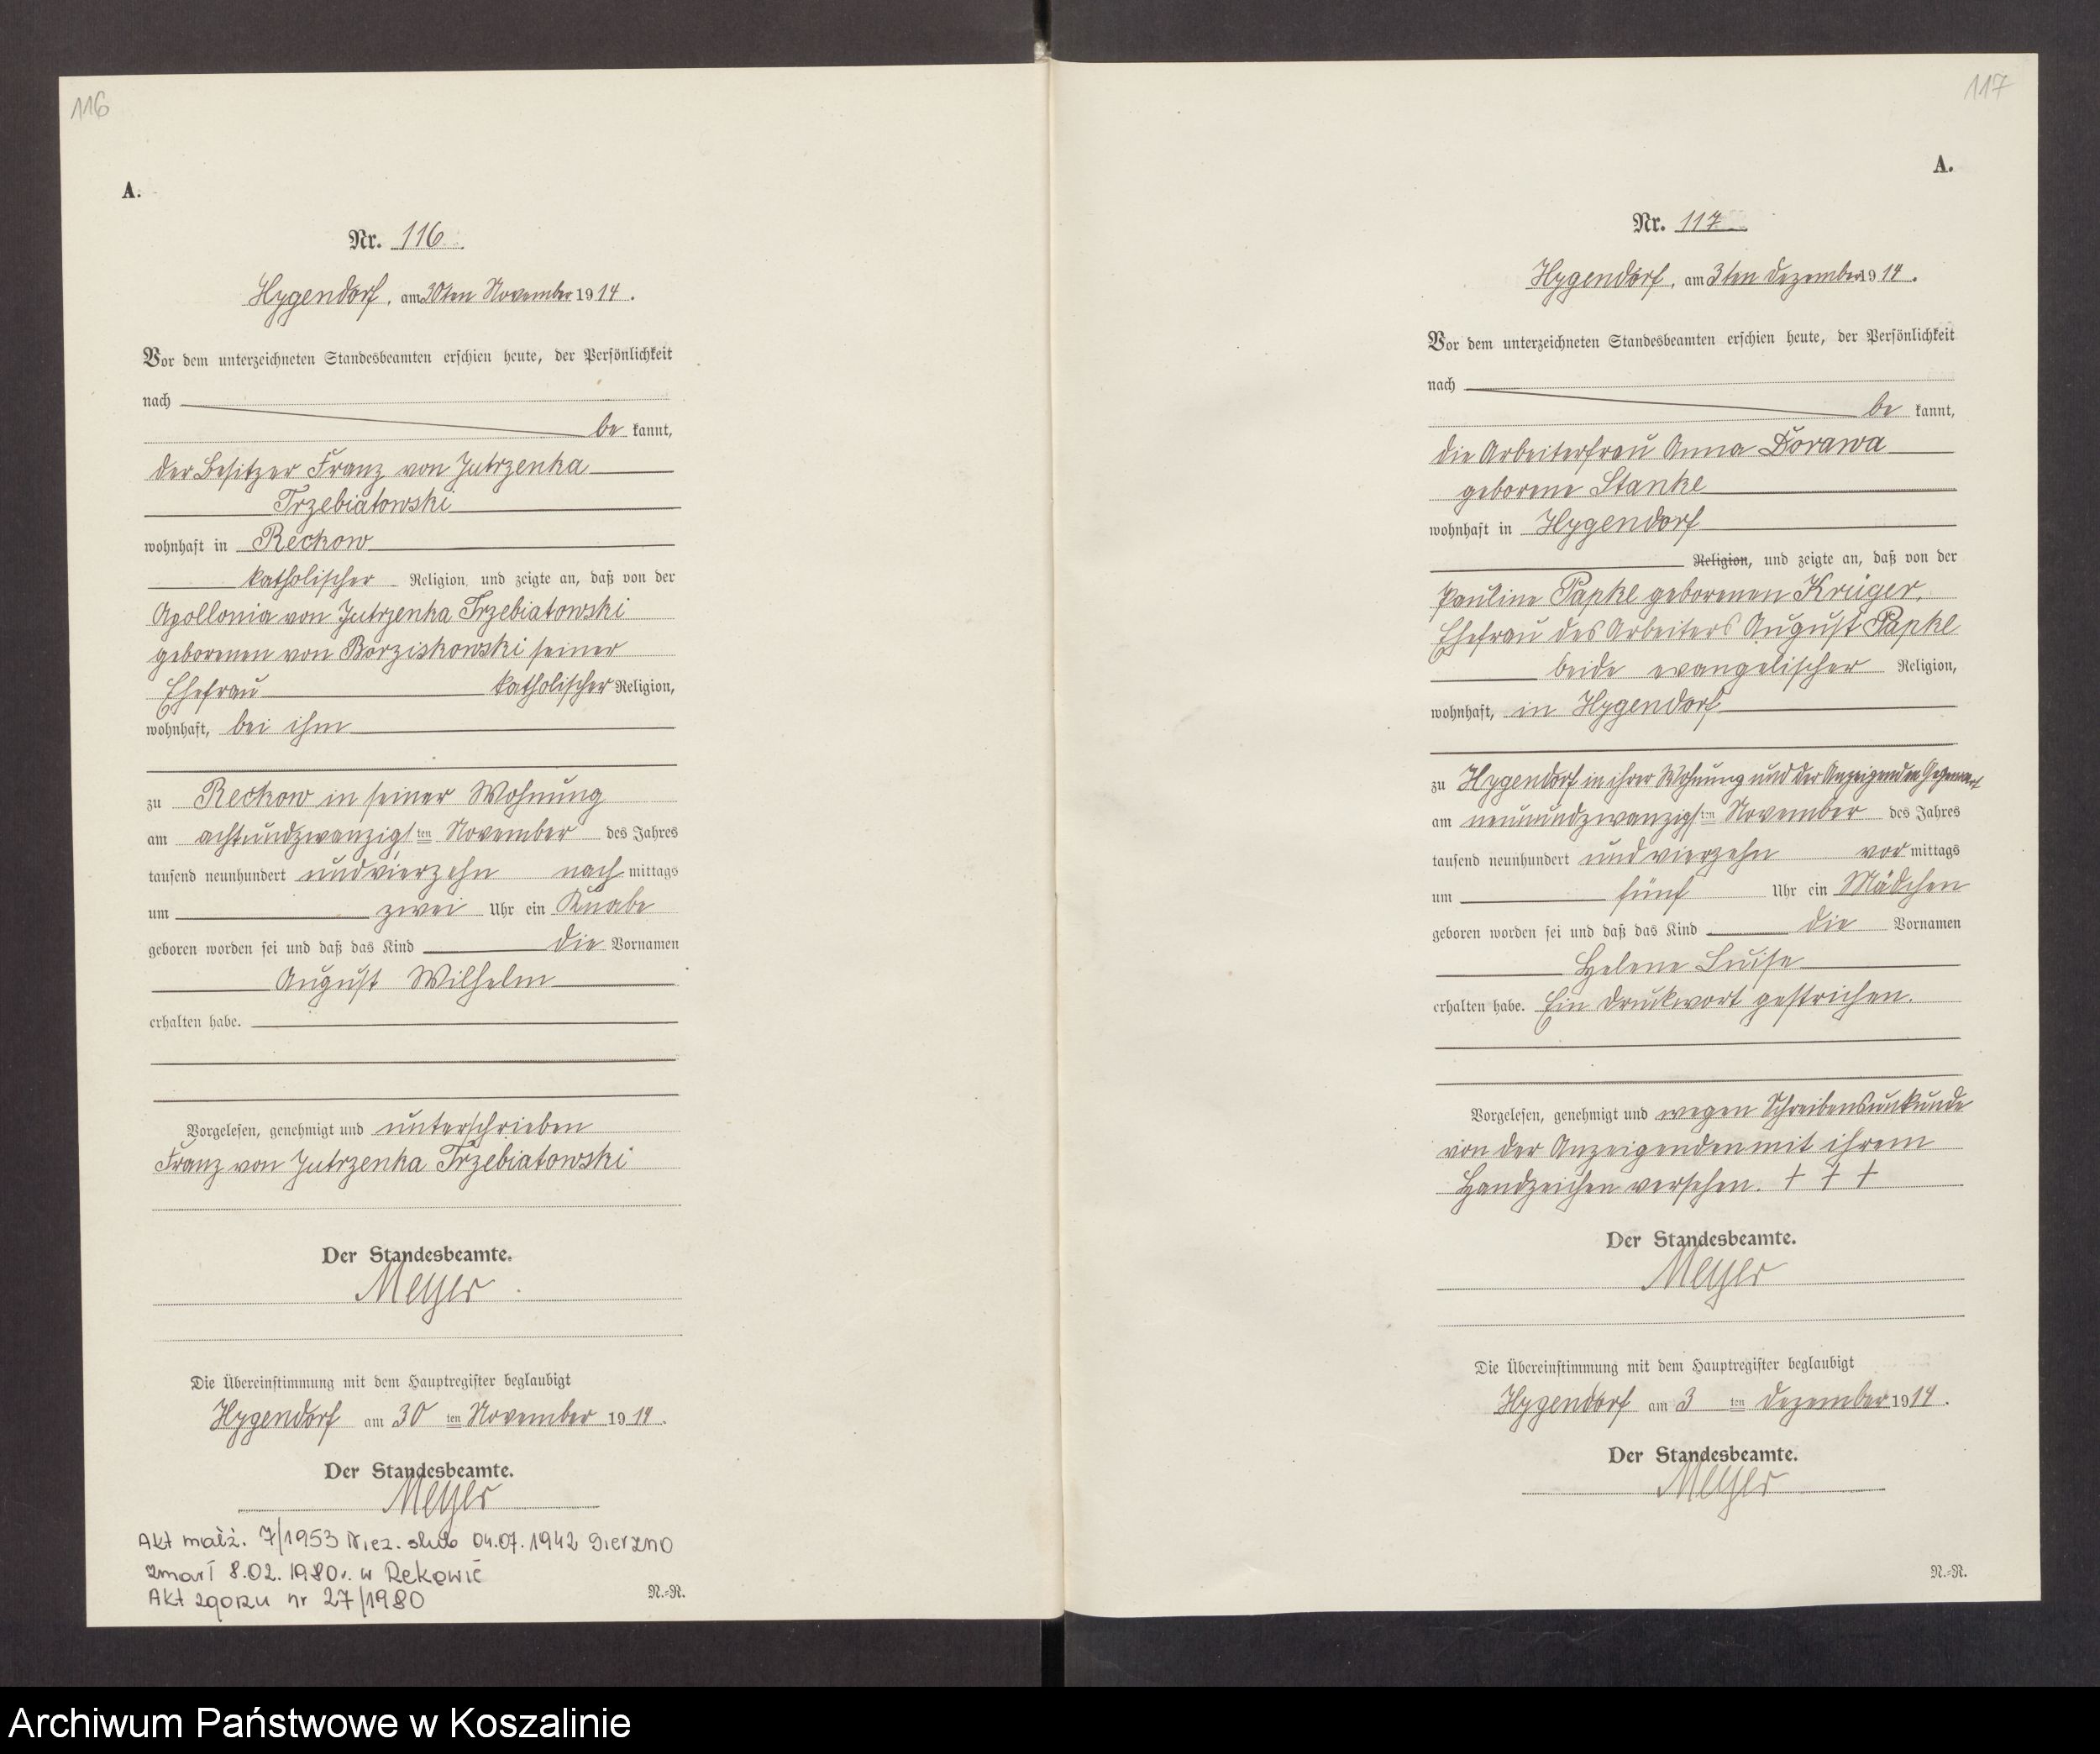 116
A.
Nr. 116
Hygendorf, am 30ten November 1914.
Vor dem unterzeichneten Standesbeamten erschien heute, der Persönlichkeit
nach
be kannt,
der Besitzer Franz von Jutrzenka
Trzebiatowski
wohnhaft in Reckow
katholischer Religion, und zeigte an, daß von der
Apollonia von Jutrzenka Trzebiatowski
geborenen von Borziskowski seiner
Ehefrau katholischer Religion,
wohnhaft, bei ihm
zu Reckow in seiner Wohnung
am achtundzwanzigsten November des Jahres
tausend neunhundert und vierzehn nach mittags
um zwei Uhr ein Knabe
geboren worden sei und daß das Kind die Vornamen
August Wilhelm
erhalten habe.
Vorgelesen, genehmigt und unterschrieben
Franz von Jutrzenka Trzebiatowski
Der Standesbeamte.
Meyer
Die Übereinstimmung mit dem Hauptregister beglaubigt
Hygendorf am 30 ten November 1914.
Der Standesbeamte.
Meyer
Akt małż. 7/1953 Niez. ślub 04.07.1942 Sierzno
zmarł 8.02.1980r. w
Akt zgonu nr 27/1980
N.=R.
117
A.
Nr. 117
Hygendorf, am 3ten Dezember 1914.
Vor dem unterzeichneten Standesbeamten erschien heute, der Persönlichkeit
nach
be kannt,
die Arbeiterfrau Anna Dorawa
geborene Stanke
wohnhaft in Hygendorf
Religion, und zeigte an, daß von der
Pauline Papke geborenen Krüger,
Ehefrau des Arbeiters August Papke
beide evangelischer Religion,
wohnhaft, in Hygendorf
zu Hygendorf in ihrer Wohnung und der Anzeigenden Gegenwart
am neunundzwanzigsten November des Jahres
tausend neunhundert und vierzehn vor mittags
um fünf Uhr ein Mädchen
geboren worden sei und daß das Kind die Vornamen
Helene Luise
erhalten habe. Ein Druckwort gestrichen.
Vorgelesen, genehmigt und wegen Schreibensunkunde
von der Anzeigenden mit ihrem
Handzeichen versehen. + + +
Der Standesbeamte.
Meyer
Die Übereinstimmung mit dem Hauptregister beglaubigt
Hygendorf am 3 ten Dezember 1914.
Der Standesbeamte.
Meyer
N.=R.
Archiwum Państwowe w Koszalinie